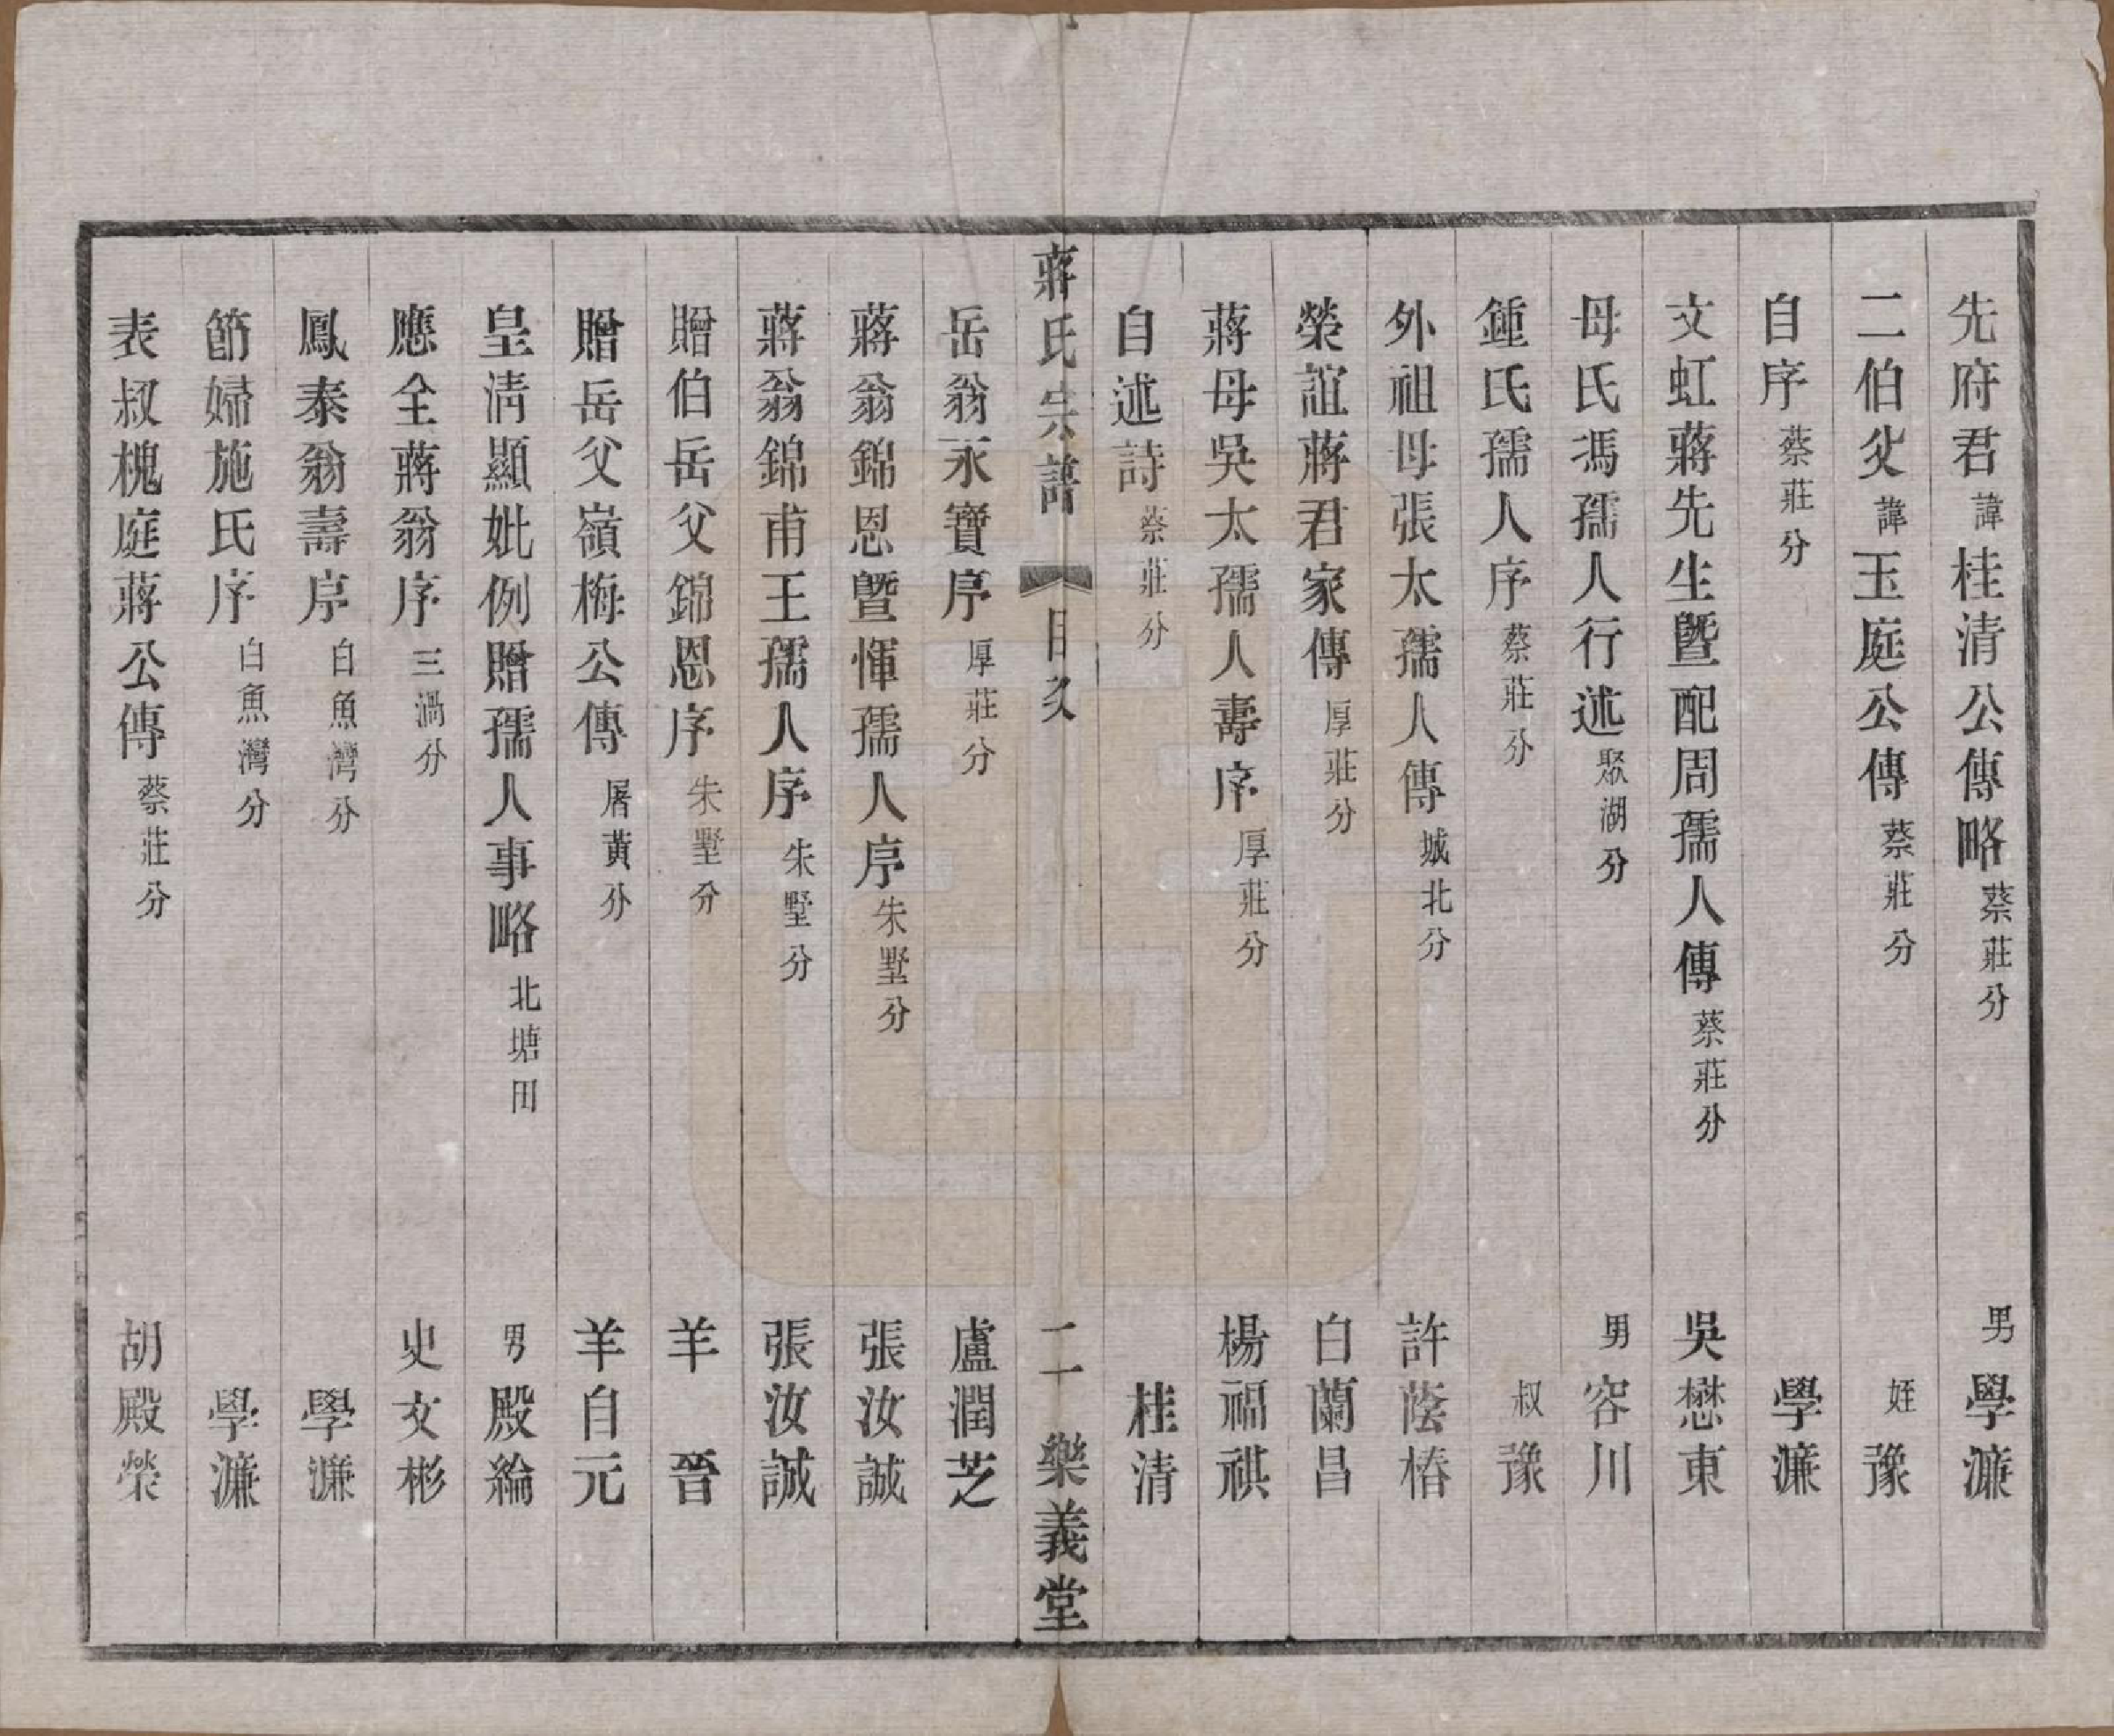 先府君諱桂清公傳略蔡莊分 男學濂
二伯父諱玉庭公傳蔡莊分 姪豫
自序蔡莊分 學濂
文虹蔣先生暨配周孺人傳蔡莊分 吳懋東
母氏馮孺人行述聚湖分 男容川
鍾氏孺人序蔡莊分 叔豫
外祖母張太孺人傳城北分 許蔭椿
榮誼蔣君家傳厚莊分 白蘭昌
蔣母吳太孺人壽序厚莊分 楊福祺
自述詩蔡莊分 桂清
蔣氏宗譜 目次 二 樂義堂
岳翁永寶序厚莊分 盧潤芝
蔣翁錦恩暨惲孺人序朱墅分 張汝誠
蔣翁錦甫王孺人序朱墅分 張汝誠
贈伯岳父錦恩序朱墅分 羊晉
贈岳父嶺梅公傳屠黃分 羊自元
皇清顯妣例贈孺人事略北塘田 男殿綸
應全蔣翁序三渦分 史文彬
鳳泰翁壽序白魚灣分 學濂
節婦施氏序白魚灣分 學濂
表叔槐庭蔣公傳蔡莊分 胡殿榮